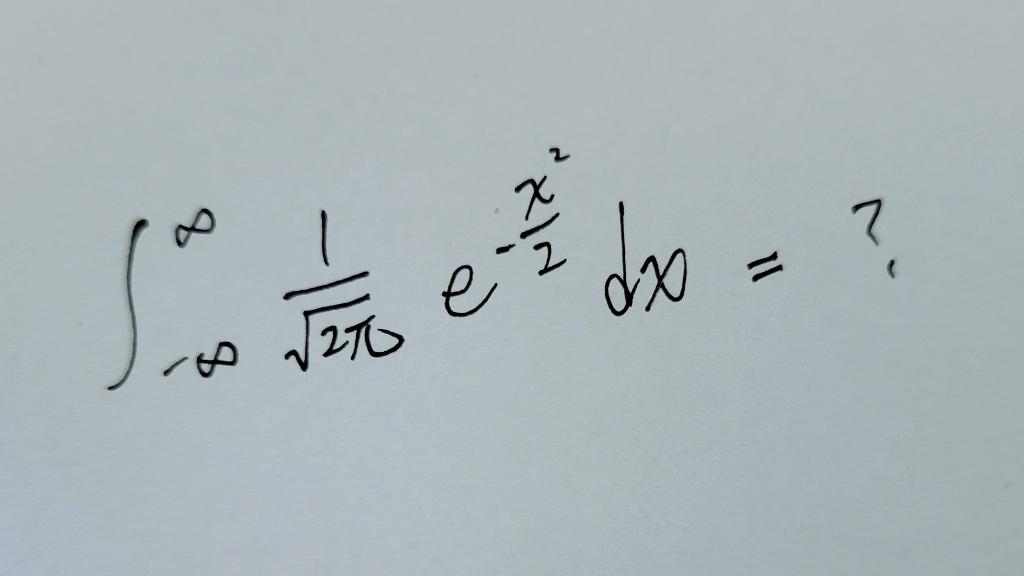 ∫_{-∞}^{∞} \frac{1}{\sqrt{2π}} e^{-\frac{x^2}{2}} dx = ?